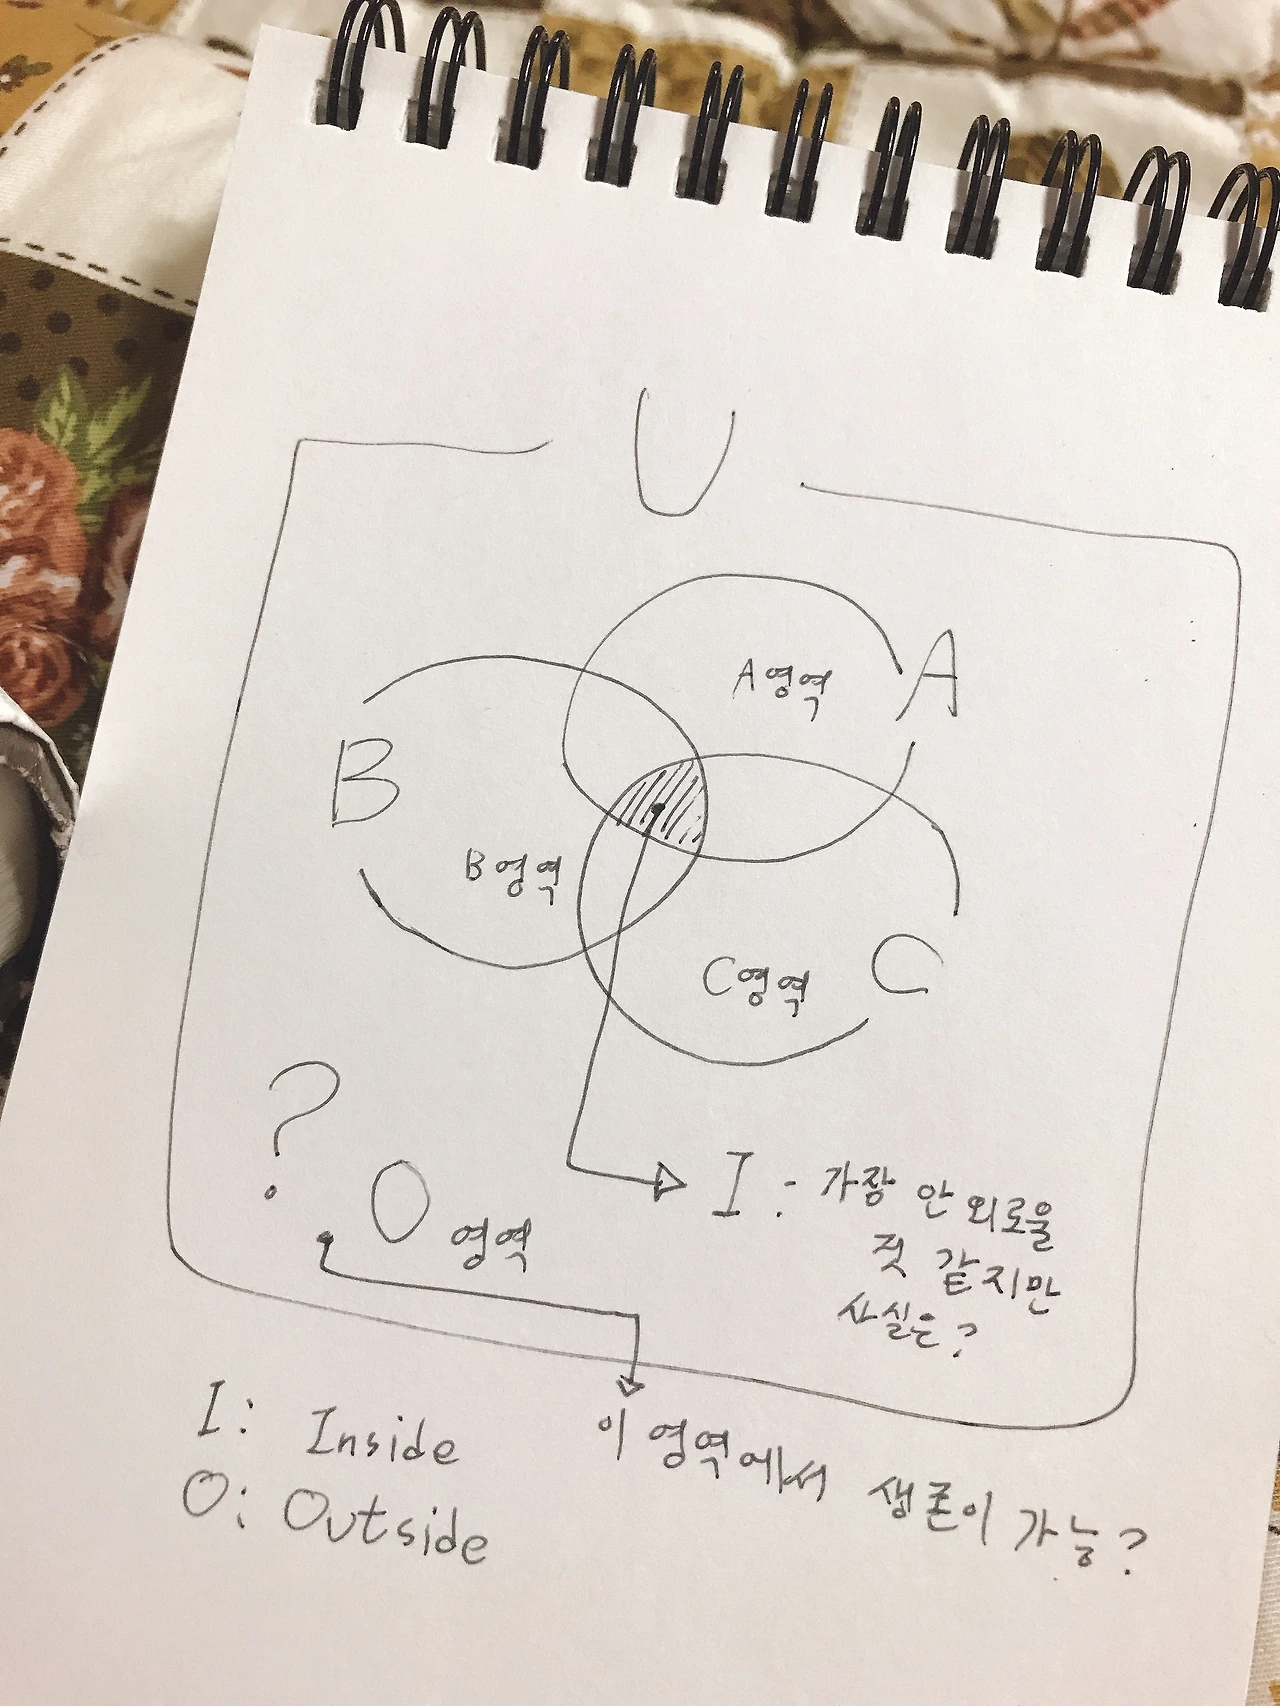 U
A영역 A
B
B영역
C영역 C
?
O 영역
I : 가장 안 외로울
것 같지만
사실은?
이 영역에서 생존이 가능?
I: Inside
O: Outside